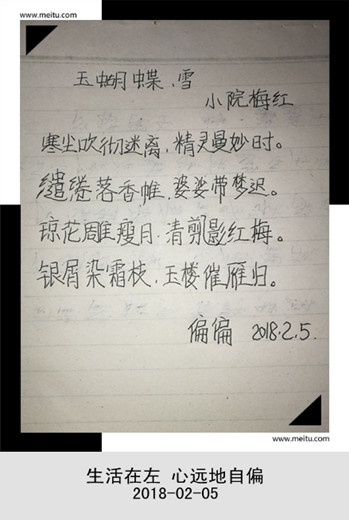 www.meitu.com
玉蝴蝶、雪
小院梅红
寒尘吹彻迷离,精灵曼妙时。
缱绻落香帷,婆娑带梦迟。
琼花雕瘦月,清剪影红梅。
银屑染霜枝,玉楼催雁归。
偏偏 2018.2.5.
www.meitu.com
生活在左 心远地自偏
2018-02-05